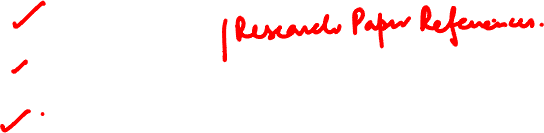 Research Paper References.